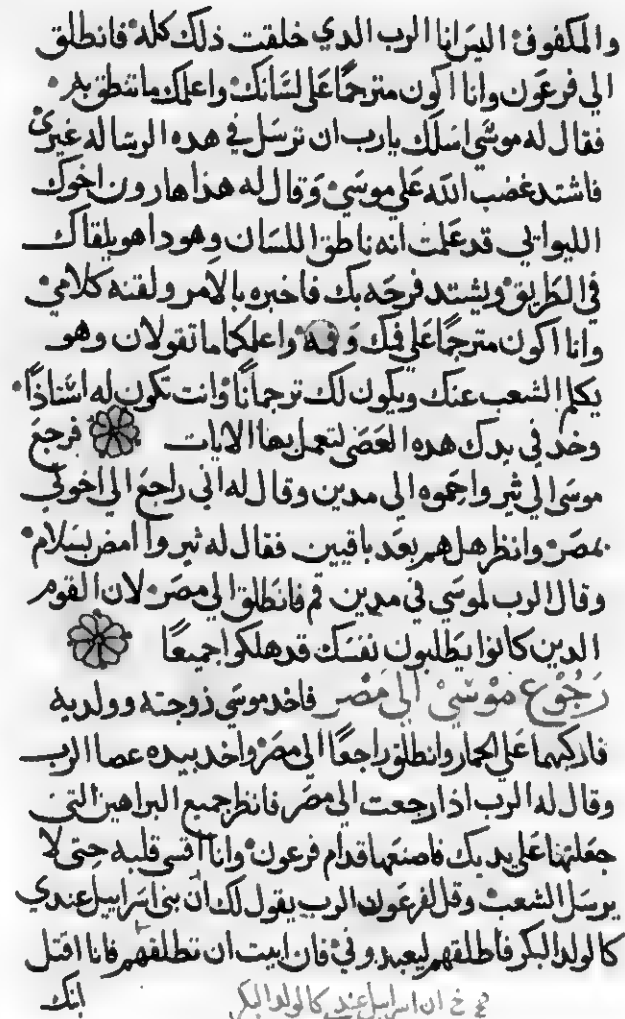 والمكفوف اليس انا الرب الدي خلقت ذلك كله فانطلق
الي فرعون وانا اكون مترجمًا علي لسانك واعلمك ما تنطق به
فقال له موسي اسلك يارب ان ترسل في هده الرساله غيري
فاشتد غضب الله علي موسي وقال له هذا هارون اخوك
الليواني قد علمت انه ناطق اللسان وهودا هو يلقاك
في الطريق ويشتد فرحه بك فاخبره بالامر ولقنه كلامي
وانا اكون مترجمًا علي فيك وفمه واعلمكما ما تقولان وهو
يكلم الشعب عنك ويكون لك ترجمانًا وانت تكون له استاذًا
وخد في يدك هده العصي لتعمل بها الايات فرجع
موسي الي ثيروا حموه الي مدين وقال له اني راجع الي اخوتي
بمصر وانظر هل هم بعد باقيين فقال له ثيروا امض بسلام
وقال الرب لموسي في مدين قم فانطلق الي مصر لان القوم
الدين كانوا يطلبون نفسك قد هلكوا جميعًا
رجوع موسي الي مصر فاخد موسي زوجته وولديه
فاركبهما علي الحمار وانطلق راجعًا الي مصر واخد بيده عصا الرب
وقال له الرب اذا رجعت الي مصر فانظر جميع البراهين التي
جعلتها علي يديك فاصنعها قدام فرعون وانا اقسي قلبه حتي لا
يرسل الشعب وقل لفرعون الرب يقول لك ان بني اسراييل عندي
كالولد البكر فاطلقهم ليعبدوني فان ابيت ان تطلقهم فانا اقتل
خ ان اسرايل عندي كالولد البكر ابنك